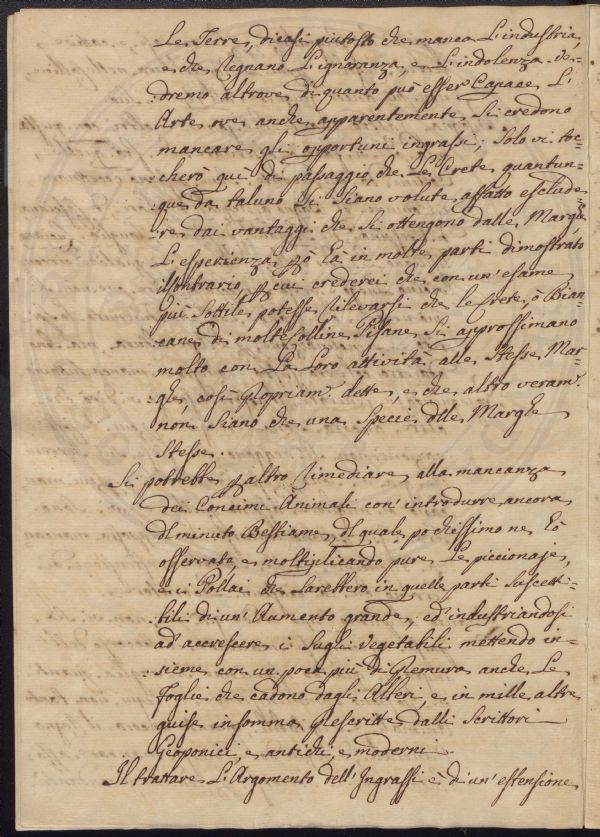 Le Terre, dicasi piutosto che manca L'industria,
e che Regnano L'ignoranza, e L'indolenza. Ve-
dremo altrove di quanto può esser Capace L'
Arte ove anche apparentemente si credono
mancare gli opportuni ingrassi; Solo vi toc-
cherò qui di passaggio, che Le Crete, quantun-
que da taluno si siano volute affatto esclude-
re dai vantaggi che si ottengono dalle Marghe
L'esperienza però Ea in molte parti dimostrato
il contrario, p cui crederei che con un'esame
più sottile potesse Rilevarsi che le Crete, o Bian-
cane di molte Colline Pisane si approssimano
molto con La Loro attività alle Stesse Mar-
ghe, così Propriam.e dette, e che altro veram.e
non Siano che una Specie dlle Marghe
Stesse.
Si potrebbe p altro Rimediare alla mancanza
dei Concimi Animali con' introdurre ancora
Il minuto Bestiame, Il quale pochissimo ne Eò
osservato, e moltiplicando pure Le piccionaje,
e i Pollai che Sarebbero in quelle parti Suscetti-
bili di un'Aumento grande, ed' industriandosi
ad' accrescere i Sughi Vegetabili mettendo in-
sieme con un poca più di Premura anche Le
Foglie che cadono dagli Alberi, e in mille altre
guise in somma Prescritte dalli Scrittori
Geoponici e antichi, e moderni.
Il trattare L'Argomento dell'Ingrassi è di un'estensione